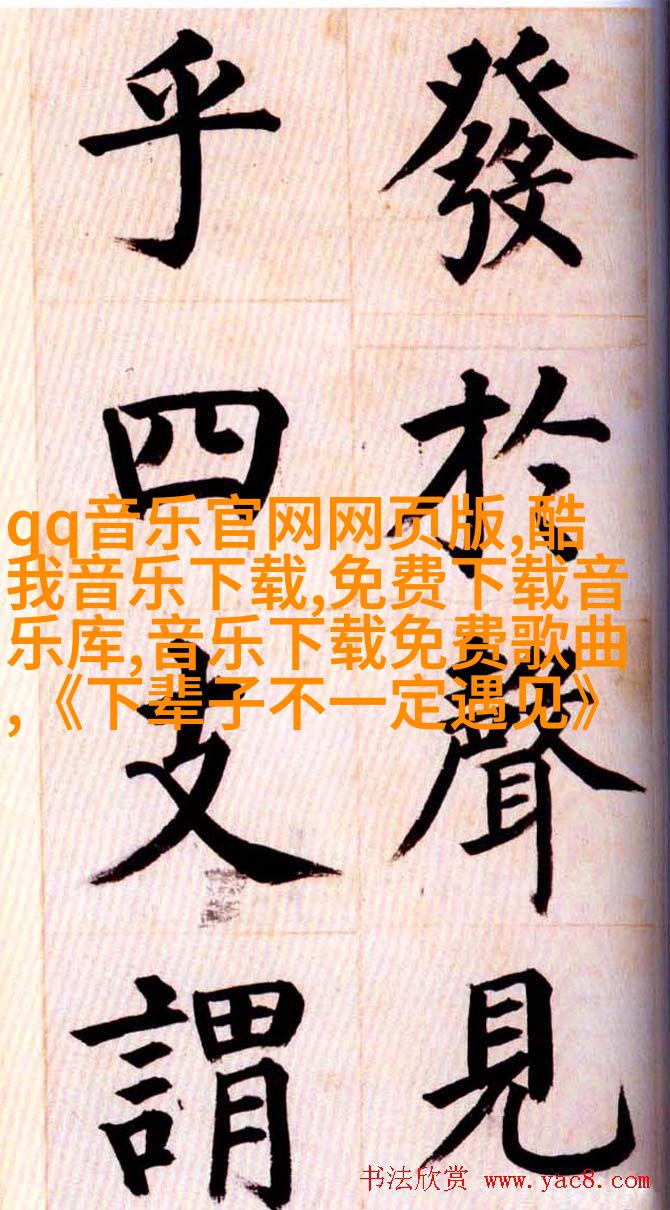 發於聲見
乎四支謂
qq音乐官网网页版,酷
我音乐下载,免费下载音
乐库,音乐下载免费歌曲
,《下辈子不一定遇见》
书法欣赏 www.yac8.com